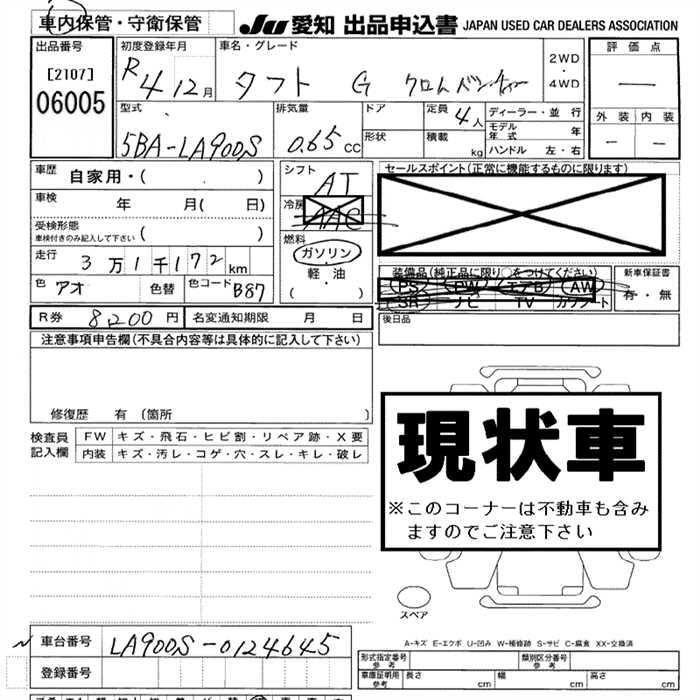 車内保管・守衛保管 JU 愛知 出品申込書 JAPAN USED CAR DEALERS ASSOCIATION
出品番号 初度登録年月 車名・グレード 2WD・4WD 評価点
[2107] R4 12月 タフト G クロムベンチャー —
06005
型式 排気量 ドア 定員 4人 ディーラー・並行 外装 内装
5BA-LA900S 0.65cc 形状 積載 kg モデル年式 年 — —
ハンドル 左・右
車歴 自家用・( ) シフト AT セールスポイント(正常に機能するものに限ります)
車検 年 月( 日) 冷房 AAC
受検形態 車検付きのみ記入して下さい ( ) 燃料 ガソリン
走行 3万1千172km 軽・油 装備品(純正品に限り○をつけてください) 新車保証書
色 アオ 色替 色コード B87 ( ・ ) PS PW エアB AW 有・無
SR ナビ TV カワシート
R券 8,200円 名変通知期限 月 日 後日品
注意事項申告欄(不具合内容等は具体的に記入して下さい)
現状車
※このコーナーは不動車も含み
ますのでご注意下さい
修復歴 有(箇所 )
検査員 FW キズ・飛石・ヒビ割・リペア跡・X要
記入欄 内装 キズ・汚レ・コゲ・穴・スレ・キレ・破レ
スペア
A-キズ E-エクボ U-凹み W-補修跡 S-サビ C-腐食 XX-交換済
車台番号 LA900S-0124645
登録番号
形式指定番号 参考 類別区分番号 参考
車庫証明用 参考 長さ cm 幅 cm 高さ cm